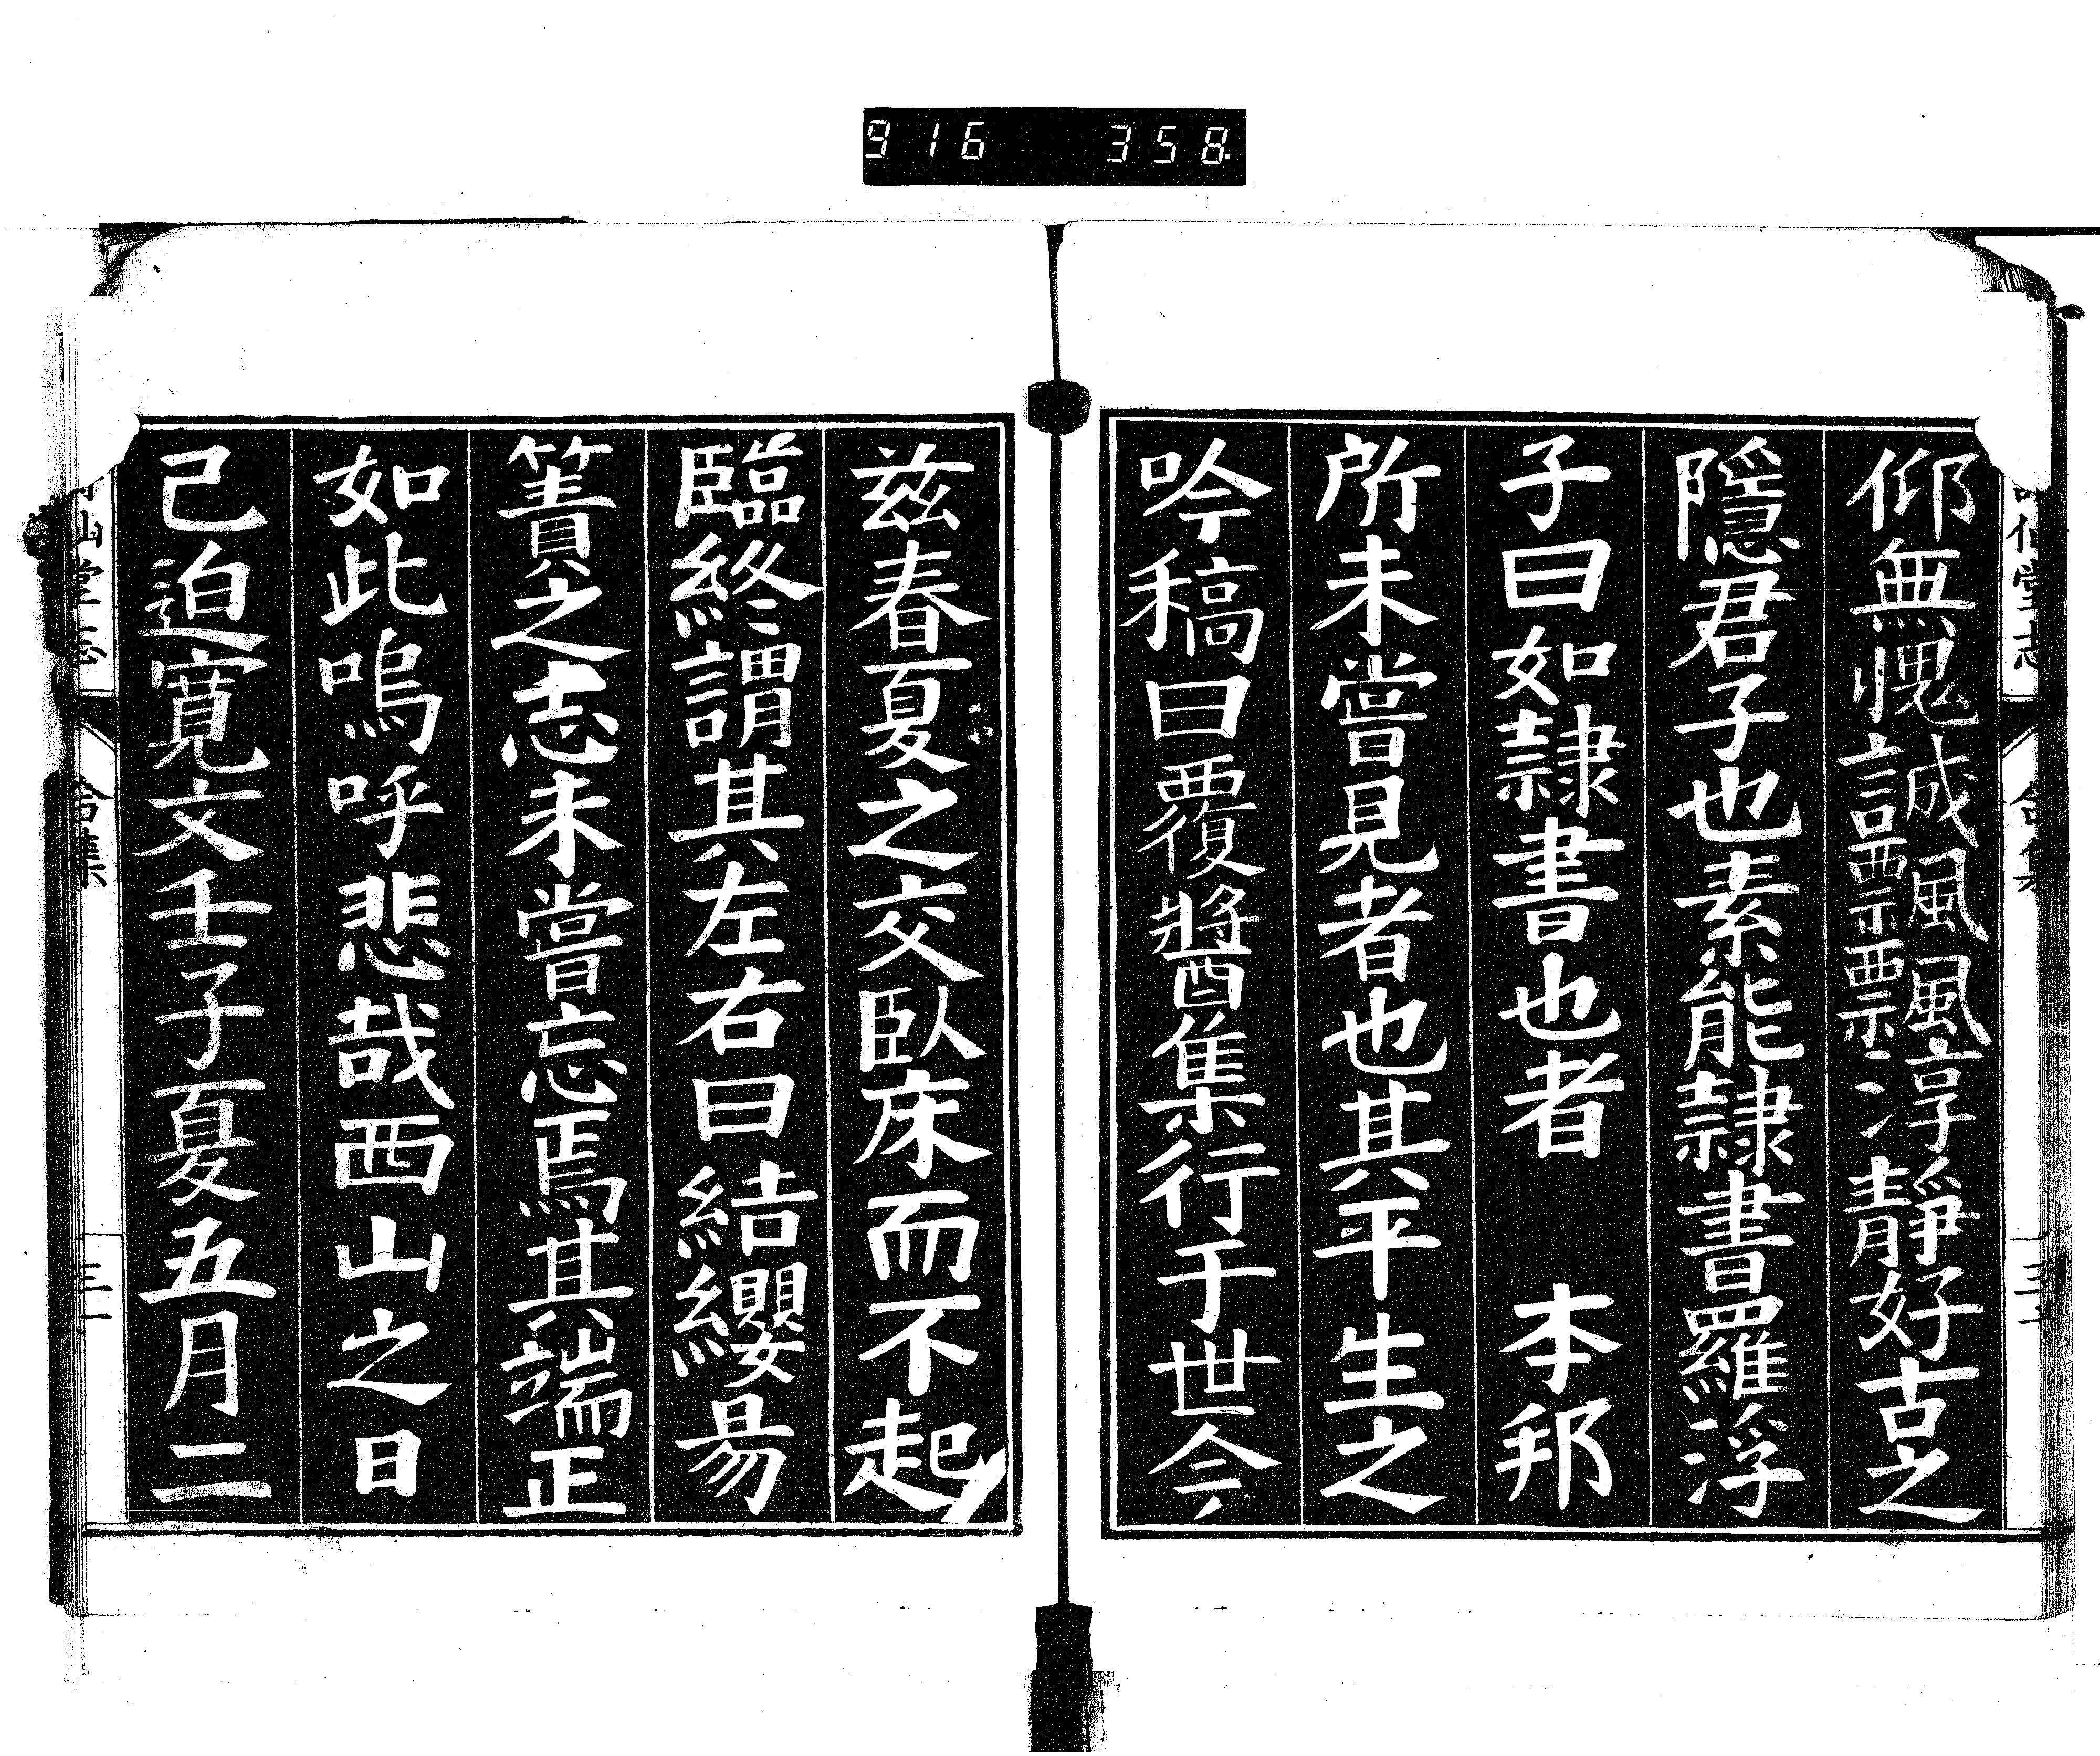 916 358
仰無愧誠飄飄淳靜好古之
隱君子也素能隷書羅浮
子曰如隷書也者　本邦
所未嘗見者也其平生之
吟稿曰覆醬集行于世今
茲春夏之交臥床而不起
臨終謂其左右曰結纓易
簀之志未嘗忘焉其端正
如此嗚呼悲哉西山之日
已迫寛文壬子夏五月二